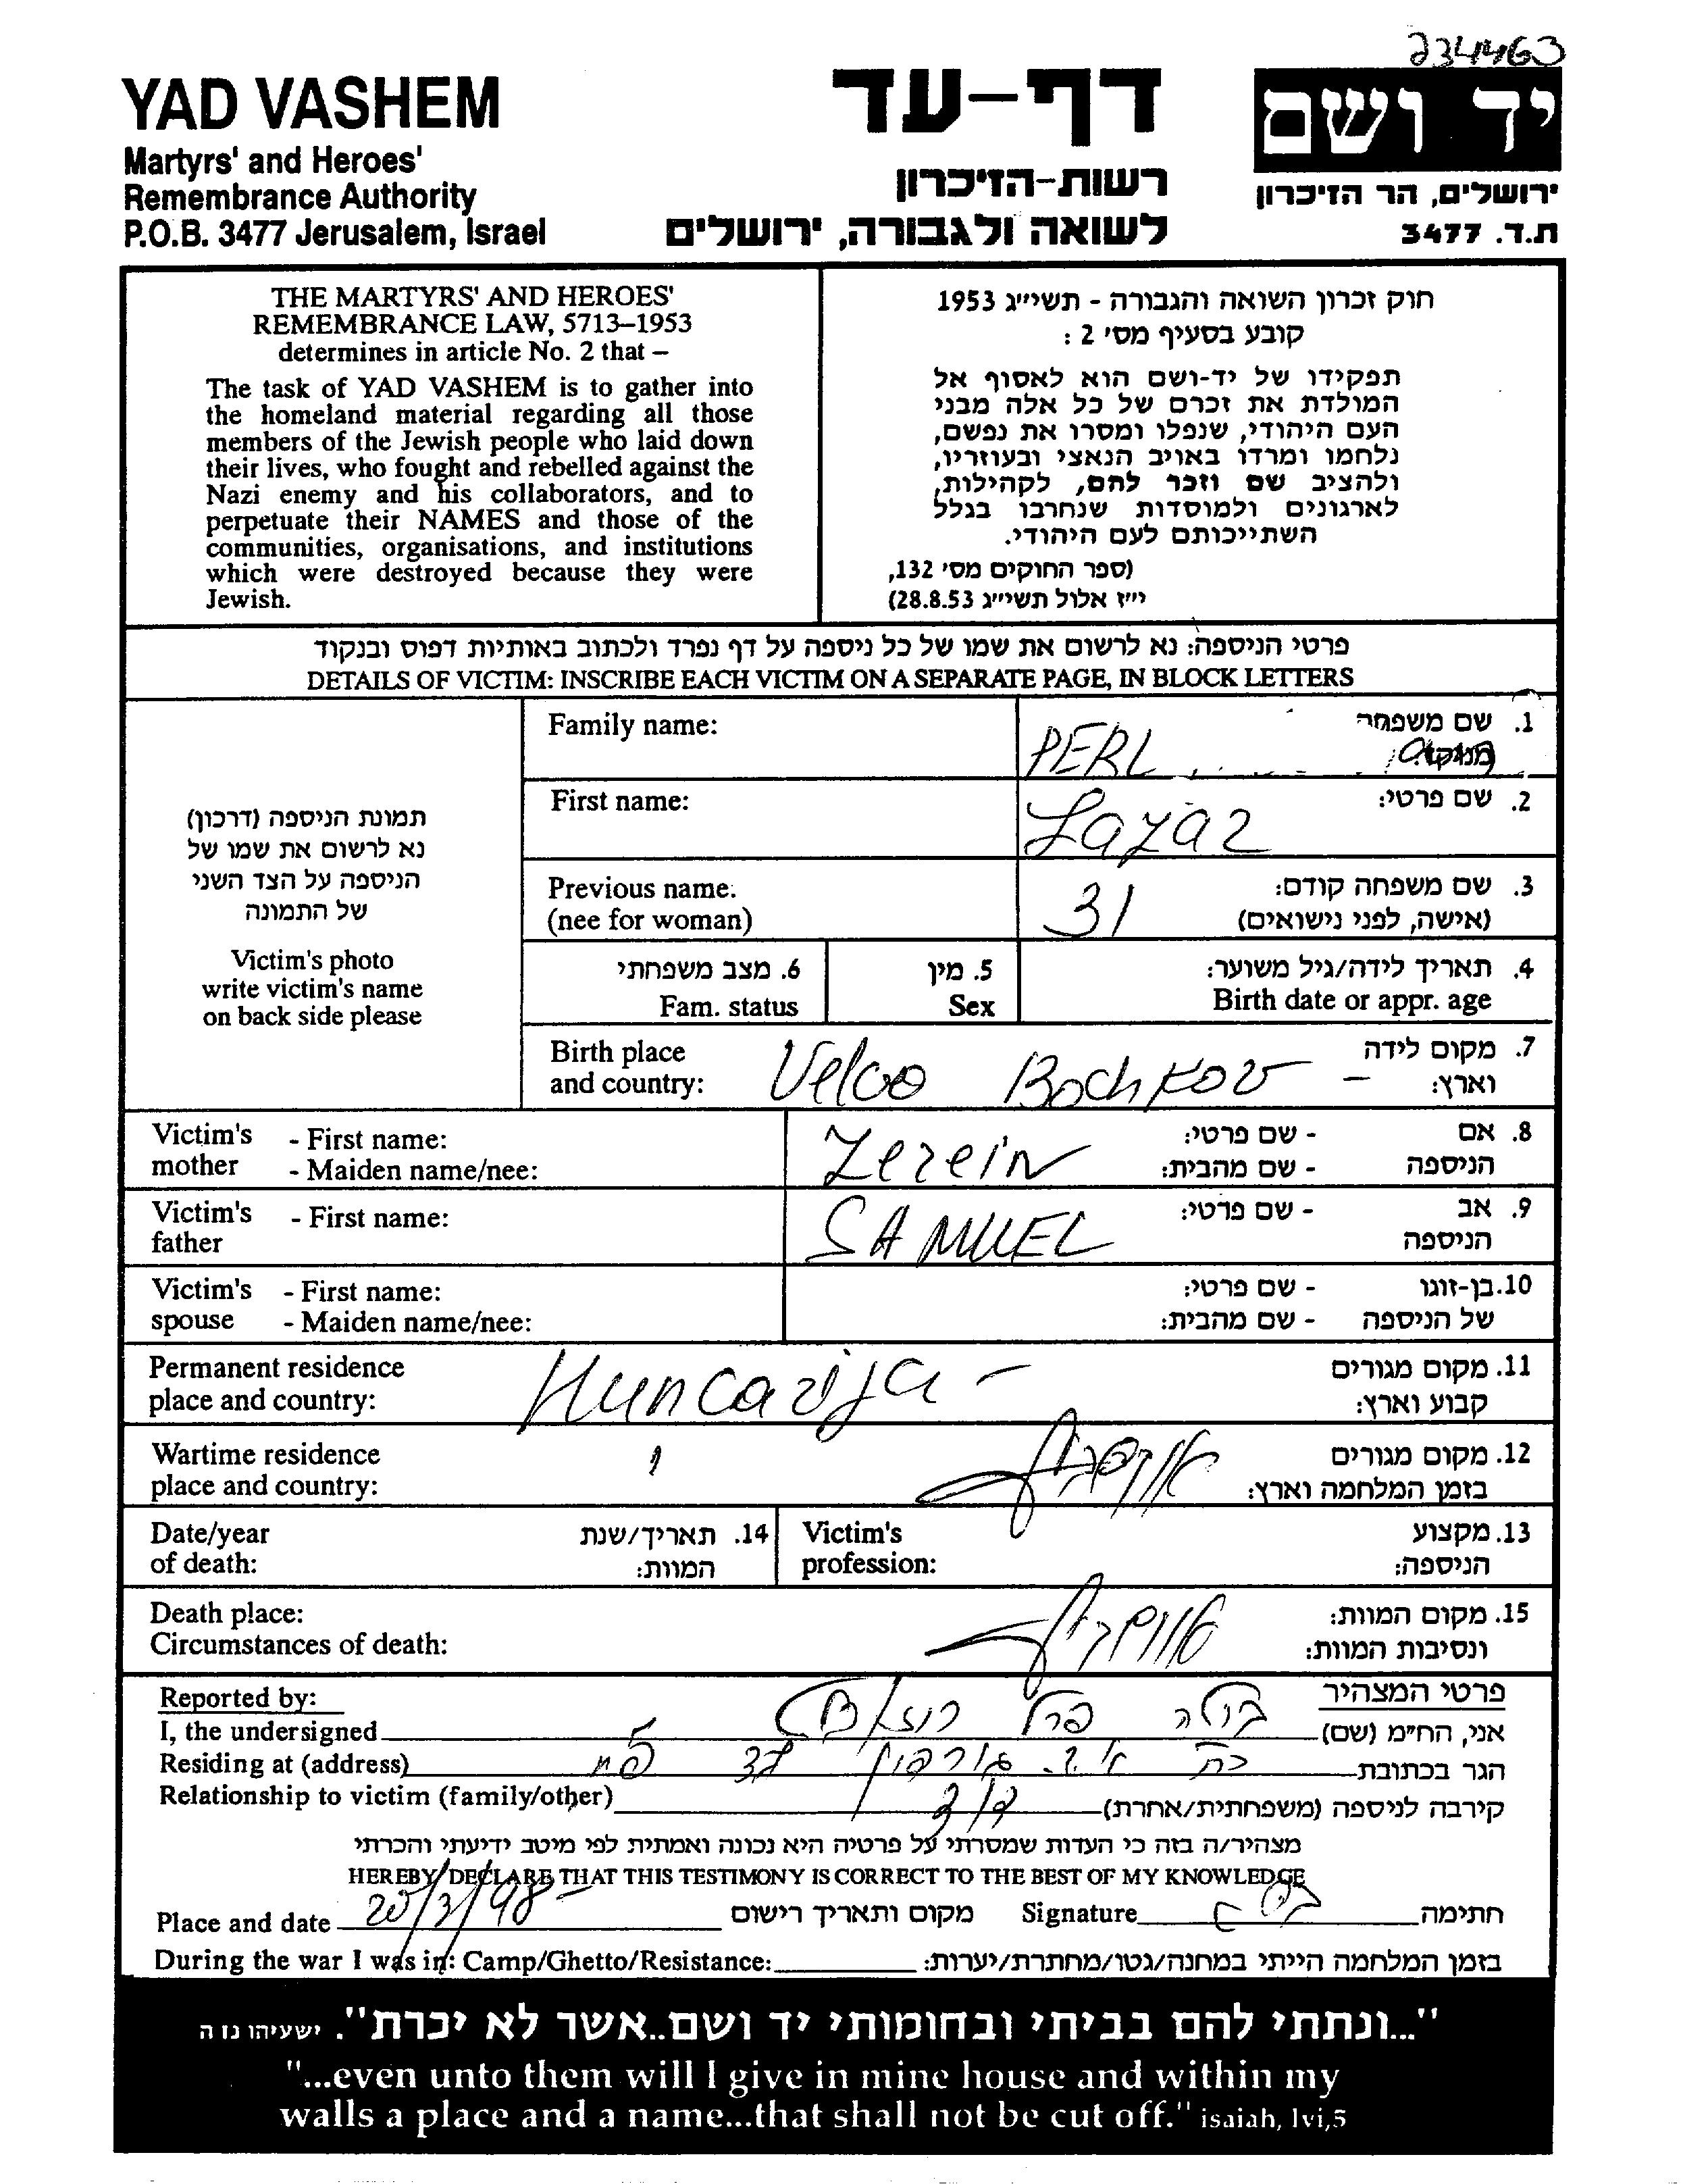 234463
YAD VASHEM
Martyrs' and Heroes'
Remembrance Authority
P.O.B. 3477 Jerusalem, Israel
דף-עד
רשות-הזיכרון
לשואה ולגבורה, ירושלים
יד ושם
ירושלים, הר הזיכרון
ת.ד. 3477
THE MARTYRS' AND HEROES'
REMEMBRANCE LAW, 5713–1953
determines in article No. 2 that –
The task of YAD VASHEM is to gather into
the homeland material regarding all those
members of the Jewish people who laid down
their lives, who fought and rebelled against the
Nazi enemy and his collaborators, and to
perpetuate their NAMES and those of the
communities, organisations, and institutions
which were destroyed because they were
Jewish.
חוק זכרון השואה והגבורה - תשי״ג 1953
קובע בסעיף מס׳ 2 :
תפקידו של יד-ושם הוא לאסוף אל
המולדת את זכרם של כל אלה מבני
העם היהודי, שנפלו ומסרו את נפשם,
נלחמו ומרדו באויב הנאצי ובעוזריו,
ולהציב שם וזכר להם, לקהילות,
לארגונים ולמוסדות שנחרבו בגלל
השתייכותם לעם היהודי.
(ספר החוקים מס׳ 132,
י״ז אלול תשי״ג 28.8.53)
פרטי הניספה: נא לרשום את שמו של כל ניספה על דף נפרד ולכתוב באותיות דפוס ובנקוד
DETAILS OF VICTIM: INSCRIBE EACH VICTIM ON A SEPARATE PAGE, IN BLOCK LETTERS
תמונת הניספה (דרכון)
נא לרשום את שמו של
הניספה על הצד השני
של התמונה
Victim's photo
write victim's name
on back side please
Family name: PERL 1. שם משפחה
First name: Lazar 2. שם פרטי:
Previous name: 31 3. שם משפחה קודם:
(nee for woman) (אישה, לפני נישואים)
6. מצב משפחתי 5. מין 4. תאריך לידה/גיל משוער:
Fam. status Sex Birth date or appr. age
Birth place 7. מקום לידה
and country: Bochkov וארץ:
Victim's - First name: - שם פרטי: 8. אם
mother - Maiden name/nee: - שם מהבית: הניספה
Victim's - First name: SAMUEL - שם פרטי: 9. אב
father הניספה
Victim's - First name: - שם פרטי: 10. בן-זוגו
spouse - Maiden name/nee: - שם מהבית: של הניספה
Permanent residence 11. מקום מגורים
place and country: Huncarija - קבוע וארץ:
Wartime residence 12. מקום מגורים
place and country: בזמן המלחמה וארץ:
Date/year 14. תאריך/שנת Victim's 13. מקצוע
of death: המוות: profession: הניספה:
Death place: 15. מקום המוות:
Circumstances of death: ונסיבות המוות:
Reported by: פרטי המצהיר
I, the undersigned פרל אני, הח״מ (שם)
Residing at (address) 37 הגר בכתובת
Relationship to victim (family/other) קירבה לניספה (משפחתית/אחרת)
מצהיר/ה בזה כי העדות שמסרתי על פרטיה היא נכונה ואמתית לפי מיטב ידיעתי והכרתי
HEREBY DECLARE THAT THIS TESTIMONY IS CORRECT TO THE BEST OF MY KNOWLEDGE
Place and date 20/3/98 מקום ותאריך רישום Signature חתימה
During the war I was in: Camp/Ghetto/Resistance: בזמן המלחמה הייתי במחנה/גטו/מחתרת/יערות:
"...ונתתי להם בביתי ובחומותי יד ושם..אשר לא יכרת". ישעיהו נו ה
"...even unto them will I give in mine house and within my
walls a place and a name...that shall not be cut off." isaiah, lvi,5